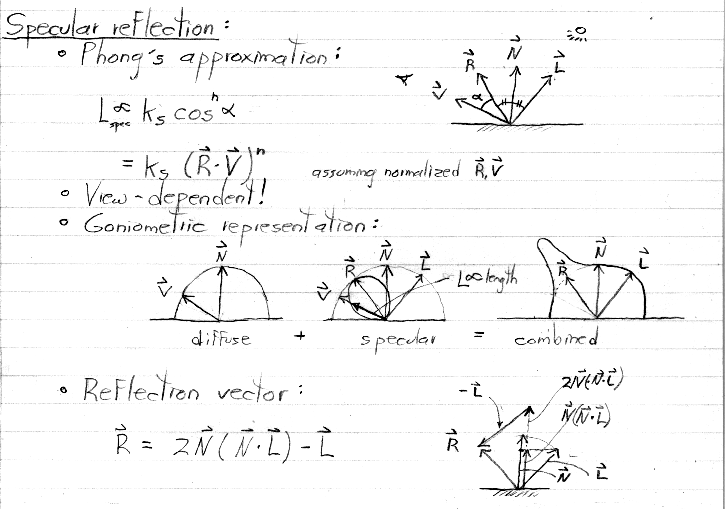 Specular reflection:
• Phong's approximation:
L spec ∝ ks cosⁿ α
= ks (R⃗·V⃗)ⁿ assuming normalized R⃗,V⃗
V⃗ R⃗ N⃗ L⃗ α
• View-dependent!
• Goniometric representation:
V⃗ N⃗
V⃗ R⃗ N⃗ L⃗ L∝length
R⃗ N⃗ L⃗
diffuse + specular = combined
• Reflection vector:
R⃗ = 2N⃗(N⃗·L⃗)-L⃗
-L⃗ 2N⃗(N⃗·L⃗)
N⃗(N⃗·L⃗)
R⃗ N⃗ L⃗